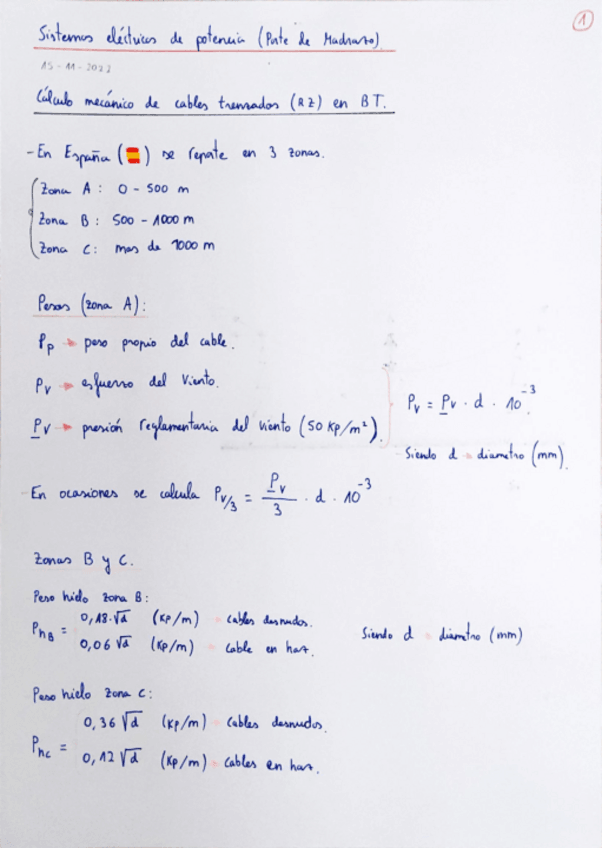 1
Sistemas eléctricos de potencia (Parte de Madrazo)
15-11-2023
Cálculo mecánico de cables trenzados (RZ) en BT.
- En España (🇪🇸) se reparte en 3 zonas.
Zona A: 0 - 500 m
Zona B: 500 - 1000 m
Zona C: mas de 1000 m
Pesos (zona A):
Pp → peso propio del cable.
Pv → esfuerzo del viento.
P̲v → presión reglamentaria del viento (50 kp/m²)
Pv = P̲v · d · 10⁻³
Siendo d → diametro (mm)
- En ocasiones se calcula Pv/3 = P̲v/3 · d · 10⁻³
Zonas B y C.
Peso hielo zona B:
PhB =
0,18·√d (kp/m) → cables desnudos.
0,06 √d (kp/m) → cable en haz.
Siendo d → diametro (mm)
Peso hielo zona C:
Phc =
0,36 √d (kp/m) → cables desnudos.
0,12 √d (kp/m) → cables en haz.